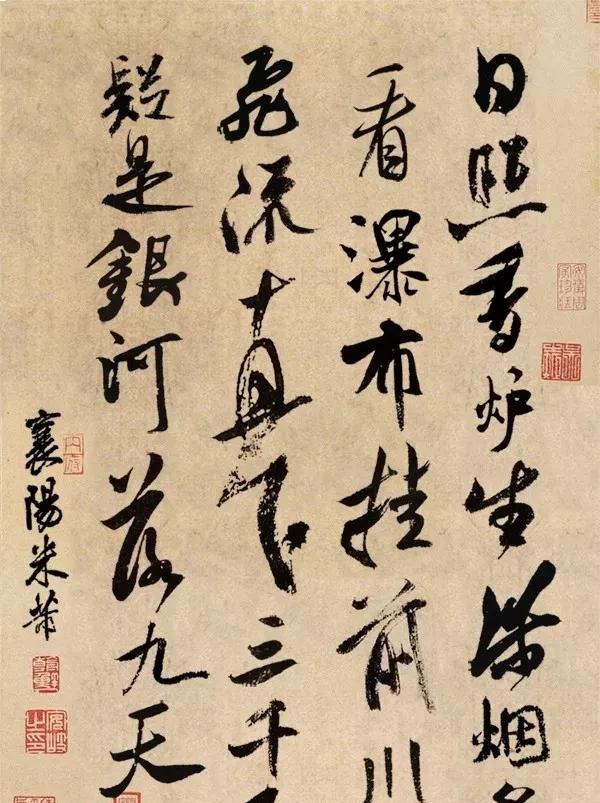 日照香炉生紫烟
看瀑布挂前川
飛流直下三千
疑是銀河落九天
襄陽米芾